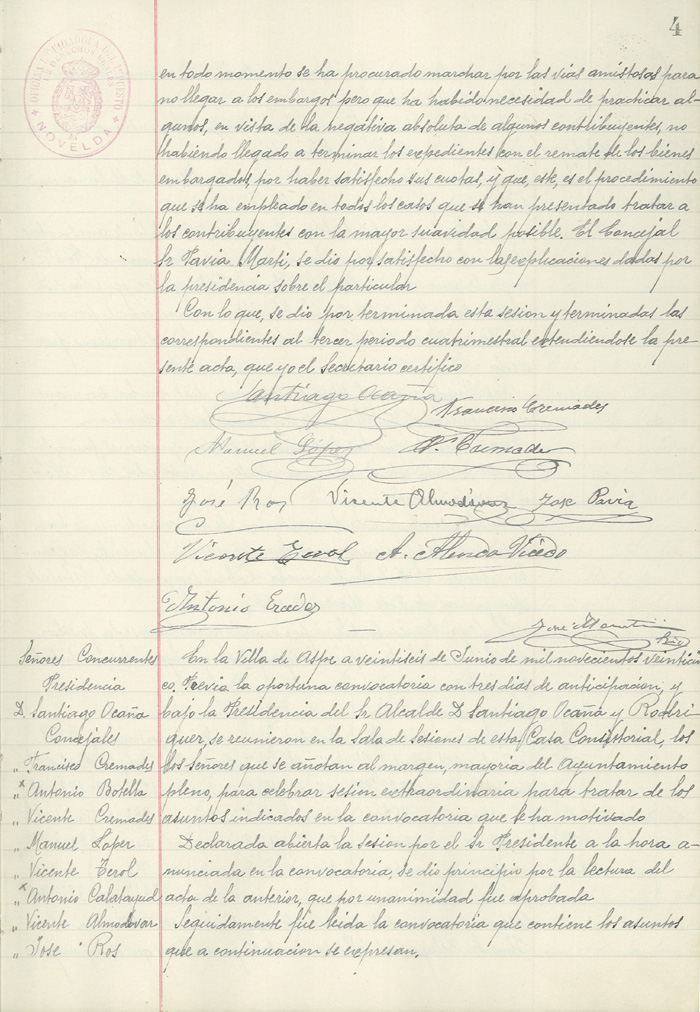 4
OFICINA LIQUIDADORA DEL IMPUESTO
DE DERECHOS REALES
NOVELDA
en todo momento se ha procurado marchar por las vias amistosas para
no llegar a los embargos pero que ha habido necesidad de practicar al-
gunos, en vista de la negativa absoluta de algunos contribuyentes, no
habiendo llegado a terminar los expedientes con el remate de los bienes
embargados, por haber satisfecho sus cuotas, y que, este, es el procedimiento
que se ha empleado en todos los casos que se han presentado tratar a
los contribuyentes con la mayor suavidad posible. El Concejal
Sr Pavia Marti, se dio por satisfecho con las explicaciones dadas por
la presidencia sobre el particular
Con lo que, se dio por terminada esta sesion y terminadas las
correspondientes al tercer periodo cuatrimestral extendiendose la pre-
sente acta, que yo el Secretario certifico
Santiago Ocaña
Francisco Cremades
Manuel López
Vte Cremades
José Ros Vicente Almodovar Jose Pavia
Vicente Terol A. Vicedo
Antonio
José
Señores Concurrentes
Presidencia
D. Santiago Ocaña
Concejales
„ Francisco Cremades
„ Antonio Botella
„ Vicente Cremades
„ Manuel Loper
„ Vicente Terol
„ Antonio Calatayud
„ Vicente Almodovar
„ Jose Ros
En la Villa de Aspe a veintiseis de Junio de mil novecientos veinticin
co. Previa la oportuna convocatoria con tres dias de anticipacion, y
bajo la Presidencia del Sr Alcalde D Santiago Ocaña y Rodri
guer, se reunieron en la Sala de Sesiones de esta Casa Consistorial, los
los señores que se añotan al margen, mayoria del Ayuntamiento
pleno, para celebrar sesion extraordinaria para tratar de los
asuntos indicados en la convocatoria que le ha motivado
Declarada abierta la sesion por el Sr Presidente a la hora a-
nunciada en la convocatoria, se dio principio por la lectura del
acta de la anterior, que por unanimidad fue aprobada
Seguidamente fue leida la convocatoria que contiene los asuntos
que a continuacion se expresan,